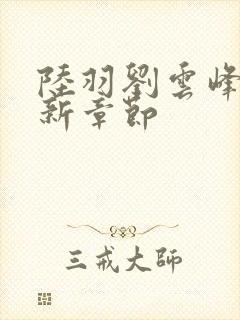 陸羽劉雲峰
新章節
三戒大師